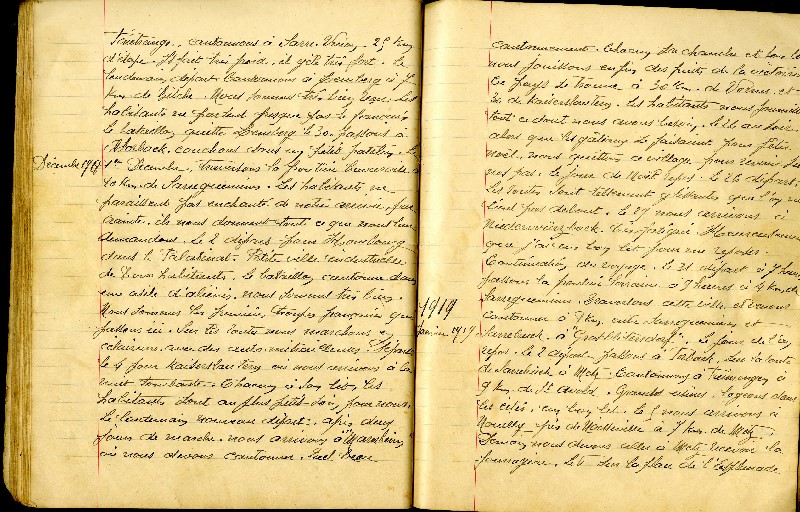 Fénétrange, cantonnons à Sarre-Union. 25 km
d'étape. Il fait très froid, il gèle très fort. Le
lendemain, départ. Cantonnons à Lemberg à 7
km. de Bitche. Nous sommes très bien reçus. Les
habitants ne parlent presque pas le français
le bataillon quitte Lemberg le 30. Passons à
Rorbach, couchons dans un petit patelin. Le
Décembre 1918
1er Décembre, traversons la frontière bavaroise à
10 km. de Sarreguemines. Les habitants ne
paraissent pas enchantés de notre arrivée, par
crainte, ils nous donnent tout ce que nous leur
demandons. Le 2 départ pour Hombourg
dans le Palatinat. Petite ville industrielle
de habitants. Le bataillon cantonne dans
un asile d'aliénés, nous sommes très bien.
Nous sommes les premières troupes françaises qui
passons ici. Sur les routes nous marchons en
éclaireurs avec des auto-mitrailleuses. Départ
le 4 pour Kaiserslautern où nous arrivons à la
nuit tombante. Chacun a son lit, les
habitants sont aux plus petits soins pour nous.
Le lendemain nouveau départ. Après deux
jours de marche, nous arrivons à
où nous devons cantonner. Quel beau
cantonnement. Chacun sa chambre et son lit
nous jouissons enfin des fruits de la victoire.
Ce pays se trouve à 30 km. de Worms et
30 de Kaiserslautern. Les habitants nous fournissent
tout ce dont nous avons besoin. Le 24 au soir
alors que les gâteaux se faisaient pour fêter
noël, nous quittons ce village pour revenir sur
nos pas. Le jour de Noël repos. Le 26 départ.
Les routes sont tellement glissantes que l'on ne
tient pas debout. Le 27 nous arrivons à
que j'ai un bon lit pour me reposer.
Continuation du voyage. Le 31 départ à 7 heures
passons la frontière lorraine à 9 heures à 4 km. de
1919
Sarreguemines. Traversons cette ville et venons
cantonner à 7 km. entre Sarreguemines et
Janvier 1919
Sarrebruck, à Le jour de l'an
repos. Le 2 départ. Passons à Forbach, sur la route
de Sarrebruck à Metz. Cantonnons à à
9 km. de St Avold. Grandes usines. Logeons dans
les cités, un bon lit. Le 5 nous arrivons à
Nouilly près de à 7 km. de Metz.
Demain nous devons aller à Metz recevoir la
fourragère. Le 6 sur la place de l'Esplanade